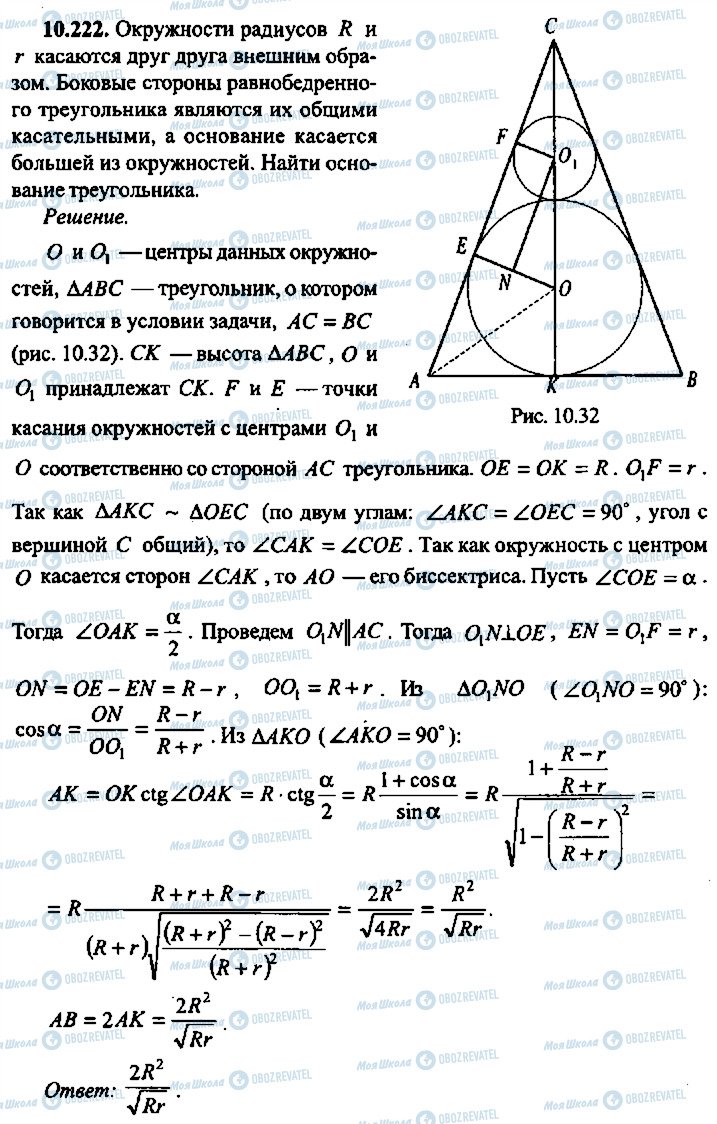 10.222. Окружности радиусов R и
r касаются друг друга внешним обра-
зом. Боковые стороны равнобедренно-
го треугольника являются их общими
касательными, а основание касается
большей из окружностей. Найти осно-
вание треугольника.
Решение.
O и O₁ — центры данных окружно-
стей, ΔABC — треугольник, о котором
говорится в условии задачи, AC = BC
(рис. 10.32). CK — высота ΔABC, O и
O₁ принадлежат CK. F и E — точки
касания окружностей с центрами O₁ и
C
F
O₁
E
N
O
A
K
B
Рис. 10.32
O соответственно со стороной AC треугольника. OE = OK = R. O₁F = r.
Так как ΔAKC ~ ΔOEC (по двум углам: ∠AKC = ∠OEC = 90°, угол с
вершиной C общий), то ∠CAK = ∠COE. Так как окружность с центром
O касается сторон ∠CAK, то AO — его биссектриса. Пусть ∠COE = α.
Тогда ∠OAK = α/2. Проведем O₁N∥AC. Тогда O₁N⊥OE, EN = O₁F = r,
ON = OE − EN = R − r, OO₁ = R + r. Из ΔO₁NO (∠O₁NO = 90°):
cos α = ON/OO₁ = (R − r)/(R + r). Из ΔAKO (∠AKO = 90°):
AK = OK ctg∠OAK = R · ctg α/2 = R (1 + cos α)/sin α = R (1 + (R − r)/(R + r))/√(1 − ((R − r)/(R + r))²) =
= R (R + r + R − r)/((R + r)√(((R + r)² − (R − r)²)/(R + r)²)) = 2R²/√(4Rr) = R²/√(Rr).
AB = 2AK = 2R²/√(Rr).
Ответ: 2R²/√(Rr).
МояШкола OBOZREVATEL